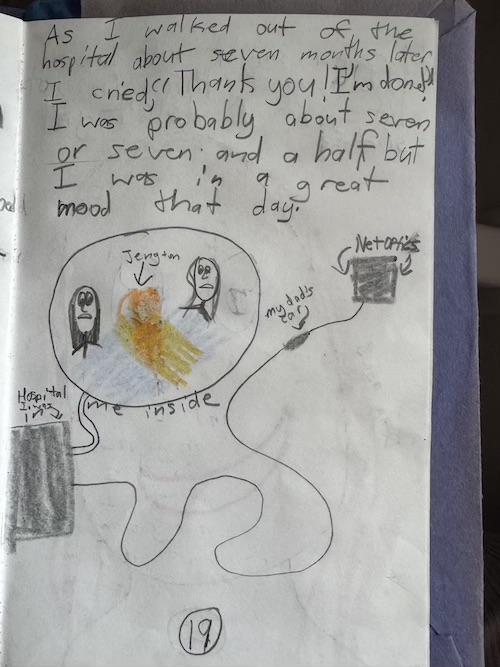 As I walked out of the
hospital about seven months later
I cried "Thank you! I'm done!"
I was probably about seven
or seven and a half but
I was in a great
mood that day.
Jengton
NetOptics
my dad's
car
Hospital
I was
in
me inside
19